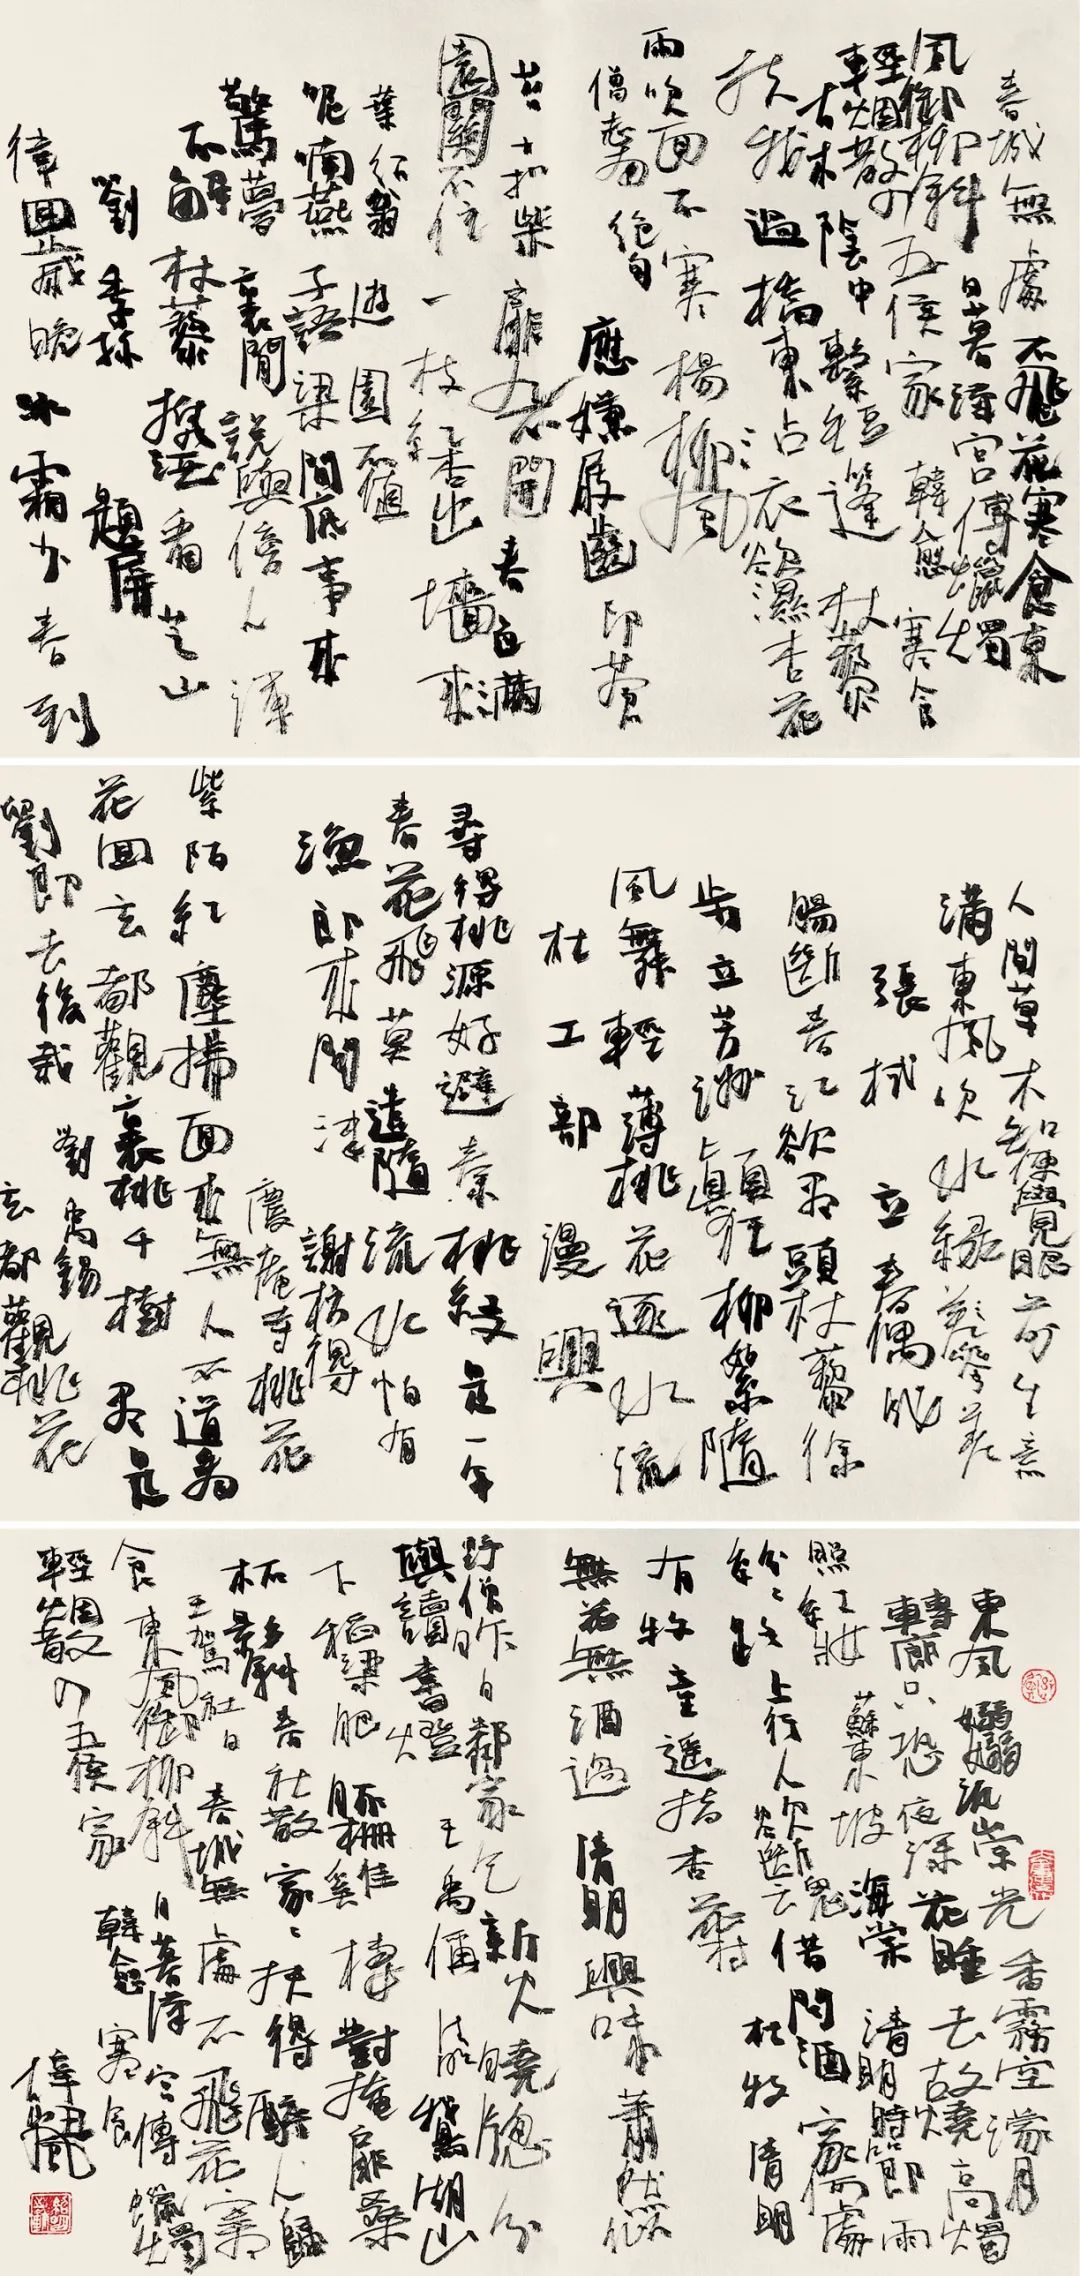 春城無處不飛花寒食東
風御柳斜日暮漢宮傳蠟燭
輕烟散入五侯家 韓愈 寒食
古木陰中繫短篷 杖藜
扶我過橋東沾衣欲濕杏花
雨吹面不寒楊柳風
僧志南 絕句 應嫌屐齒印蒼
苔十扣柴扉九不開春色滿
園關不住一枝紅杏出墻來
葉紹翁 遊園不值
呢喃燕子語梁間底事來
驚夢裏閒說與傍人渾
不解杖藜攜酒看芝山
劉季孫 題屏
律回歲晚冰霜少春到
人間草木知便覺眼前生意
滿東風吹水綠參差
張栻 立春偶成
腸斷春江欲盡頭杖藜徐
步立芳洲顛狂柳絮隨
風舞輕薄桃花逐水流
杜工部 漫興
尋得桃源好避秦桃紅又是一年
春花飛莫遣隨流水怕有
漁郎來問津 謝枋得
慶庵寺桃花
紫陌紅塵拂面來無人不道看
花回玄都觀裏桃千樹盡是
劉郎去後栽 劉禹錫
玄都觀桃花
東風嫋嫋泛崇光香霧空濛月
轉廊只恐夜深花睡去故燒高燭
照紅妝 蘇東坡 海棠 清明時節雨
紛紛路上行人欲斷魂借問酒家何處
有牧童遙指杏花村 杜牧 清明
無花無酒過清明興味蕭然似
野僧昨日鄰家乞新火曉窗分
與讀書燈 王禹偁 清明 鵝湖山
下稻粱肥豚柵雞棲對掩扉桑
柘影斜春社散家家扶得醉人歸
王駕 社日 春城無處不飛花寒
食東風御柳斜日暮漢宮傳蠟燭
輕烟散入五侯家 韓愈 寒食